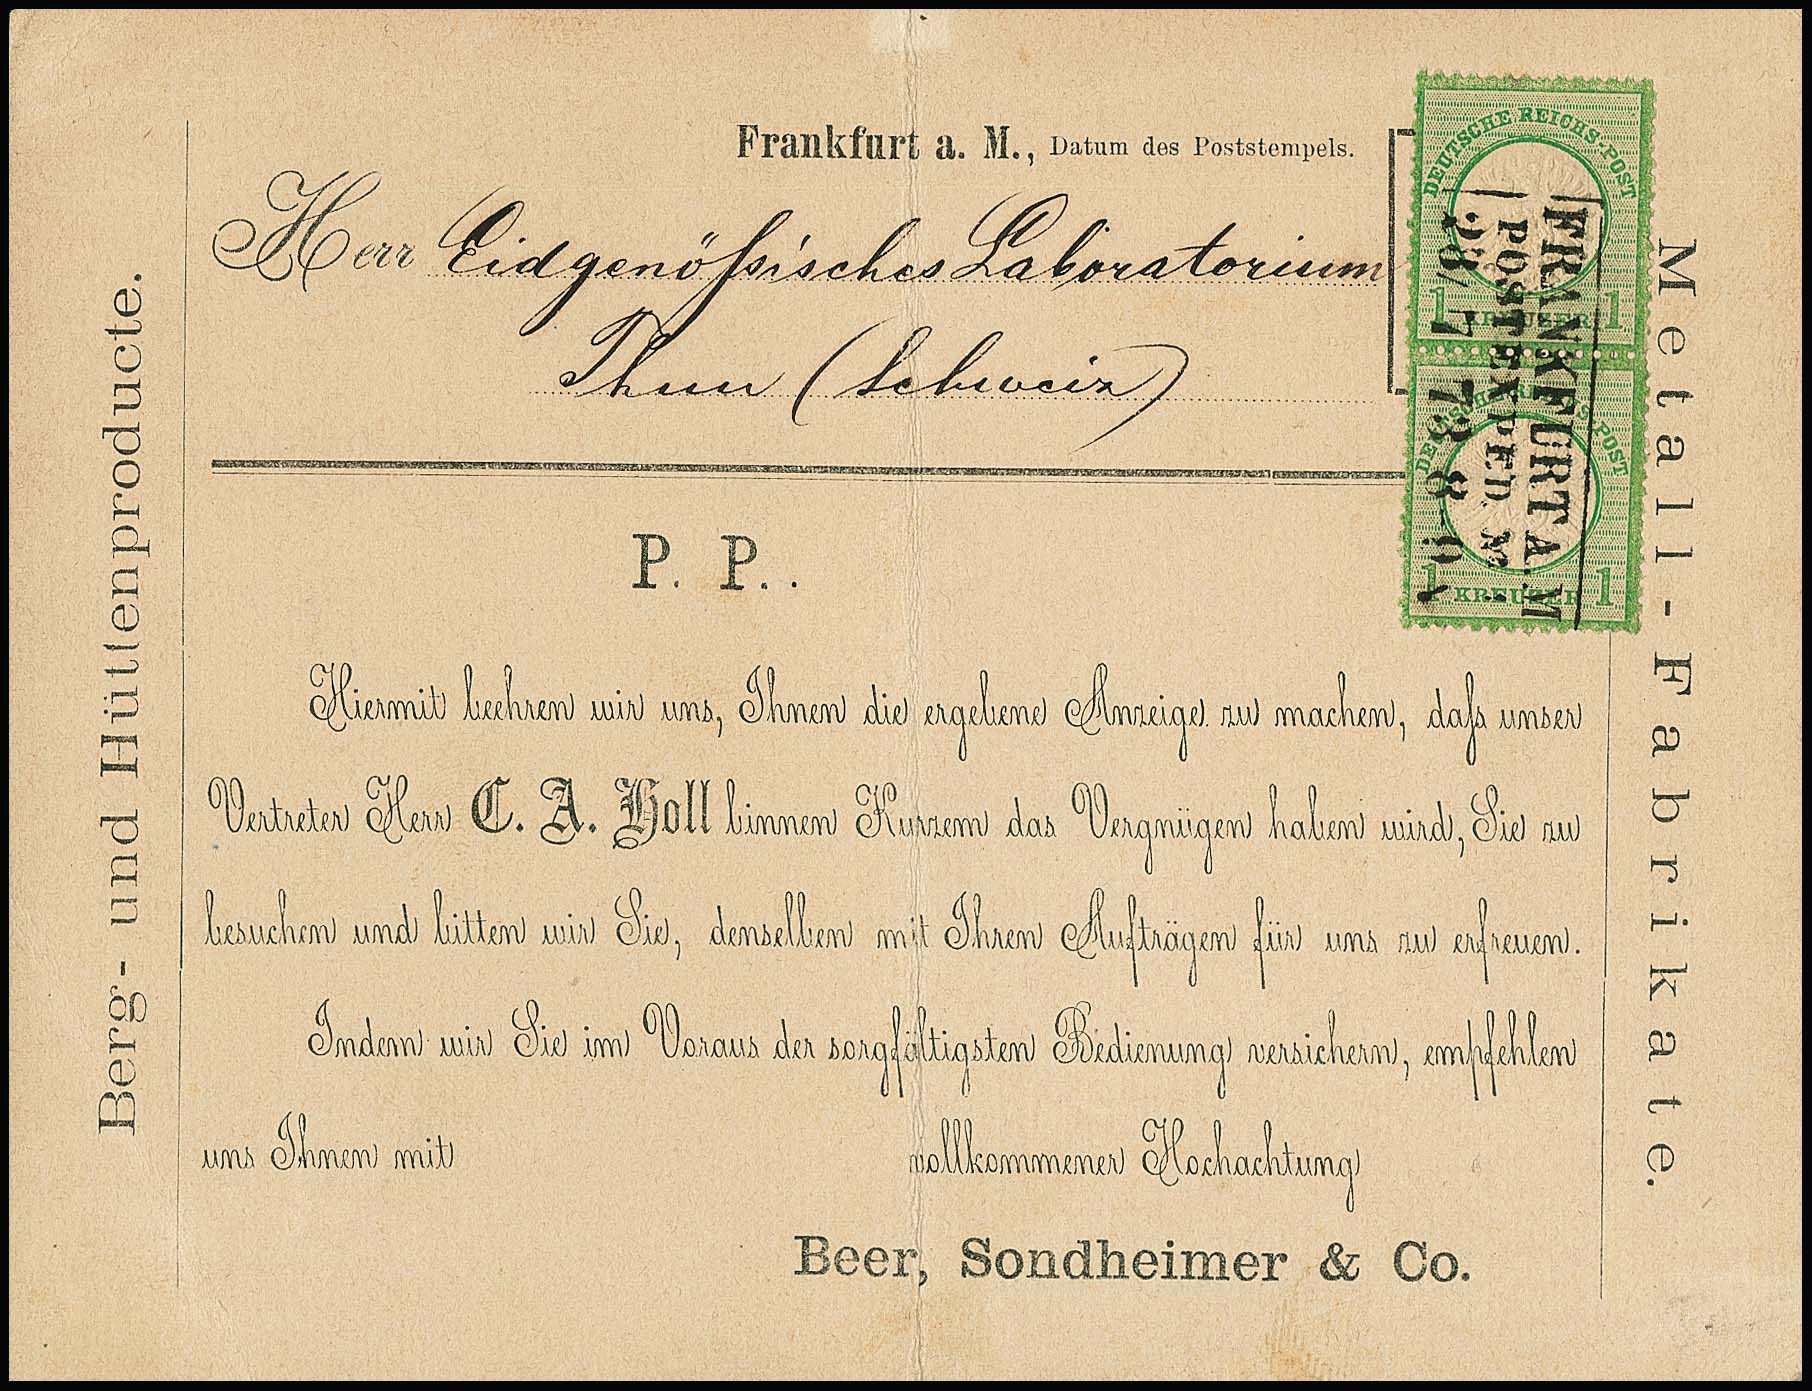 Frankfurt a. M., Datum des Poststempels.
Herr Eidgenößisches Laboratorium
Thun (Schweiz)
DEUTSCHE REICHS-POST
1 KREUZER 1
DEUTSCHE REICHS-POST
1 KREUZER 1
FRANKFURT A. M
POSTEXPED.
28/7 73 8-9
Berg- und Hüttenproducte.
Metall-Fabrikate.
P. P..
Hiermit beehren wir uns, Ihnen die ergebene Anzeige zu machen, daſs unser
Vertreter Herr C. A. Holl binnen Kurzem das Vergnügen haben wird, Sie zu
besuchen und bitten wir Sie, denselben mit Ihren Aufträgen für uns zu erfreuen.
Indem wir Sie im Voraus der sorgfältigsten Bedienung versichern, empfehlen
uns Ihnen mit vollkommener Hochachtung
Beer, Sondheimer & Co.